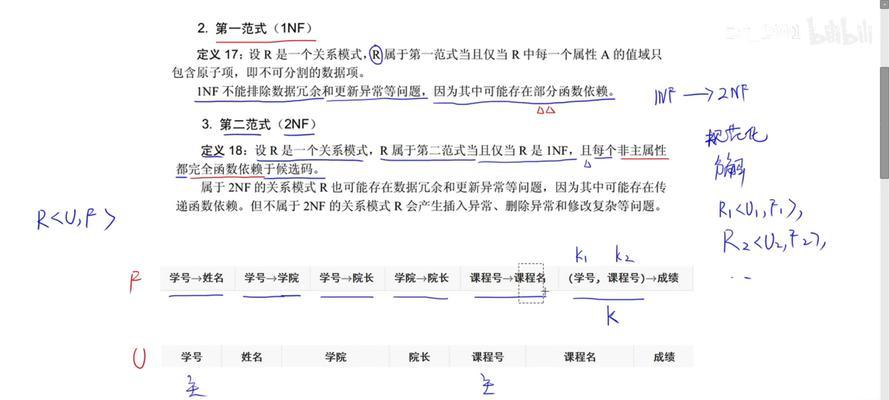 bilibili
2. 第一范式（1NF）
定义 17：设 R 是一个关系模式，R 属于第一范式当且仅当 R 中每一个属性 A 的值域只
包含原子项，即不可分割的数据项。
1NF 不能排除数据冗余和更新异常等问题，因为其中可能存在部分函数依赖。
1NF → 2NF
3. 第二范式（2NF）
定义 18：设 R 是一个关系模式，R 属于第二范式当且仅当 R 是 1NF，且每个非主属性
都完全函数依赖于候选码。
属于 2NF 的关系模式 R 也可能存在数据冗余和更新异常等问题，因为其中可能存在传
递函数依赖。但不属于 2NF 的关系模式 R 会产生插入异常、删除异常和修改复杂等问题。
规范化
分解
R1<U1,F1>,
R2<U2,F2>,
...
R<U,F>
K1 K2
F 学号→姓名 学号→学院 学号→院长 学院→院长 课程号→课程名 (学号，课程号)→成绩
K
U 学号 姓名 学院 院长 课程号 课程名 成绩
主 主